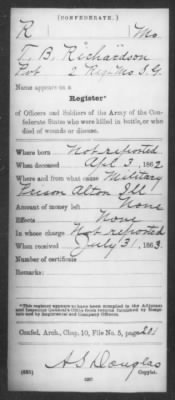 (CONFEDERATE.)
R Mo.
T. B. Richardson
Pvt 2 Reg. Mo. S. G.
Name appears on a
Register*
of Officers and Soldiers of the Army of the Con-
federate States who were killed in battle, or who
died of wounds or disease.
Where born Not reported
When deceased Apl 3, 1862
Where and from what cause Military
Prison Alton Ill
Amount of money left None
Effects None
In whose charge Not reported
When received July 31, 1863.
Number of certificate
Remarks:
*This register appears to have been compiled in the Adjutant
and Inspector General's Office from returns furnished by Hospi-
tals and by Regimental and Company Officers.
Confed. Arch., Chap. 10, File No. 5, page 201
A S Douglas
(635) Copyist.